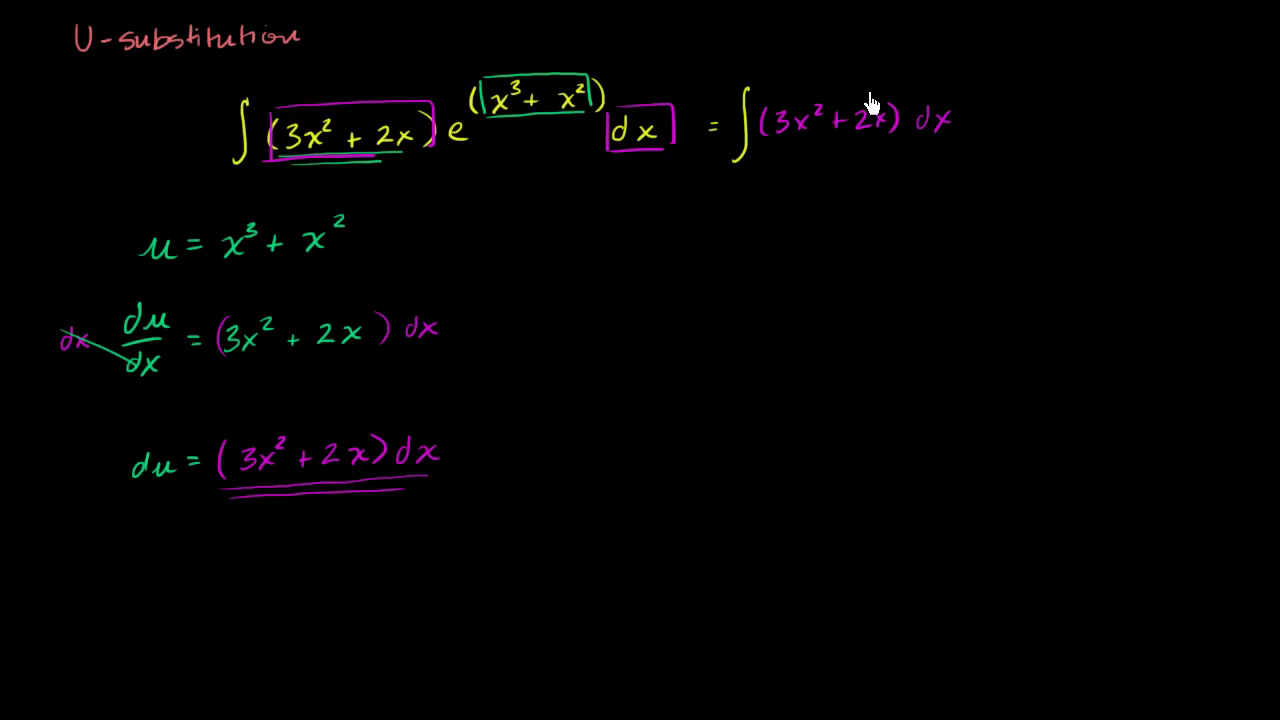 U-substitution
∫ (3x² + 2x) e^(x³ + x²) dx = ∫ (3x² + 2x) dx
u = x³ + x²
dx du/dx = (3x² + 2x) dx
du = (3x² + 2x) dx